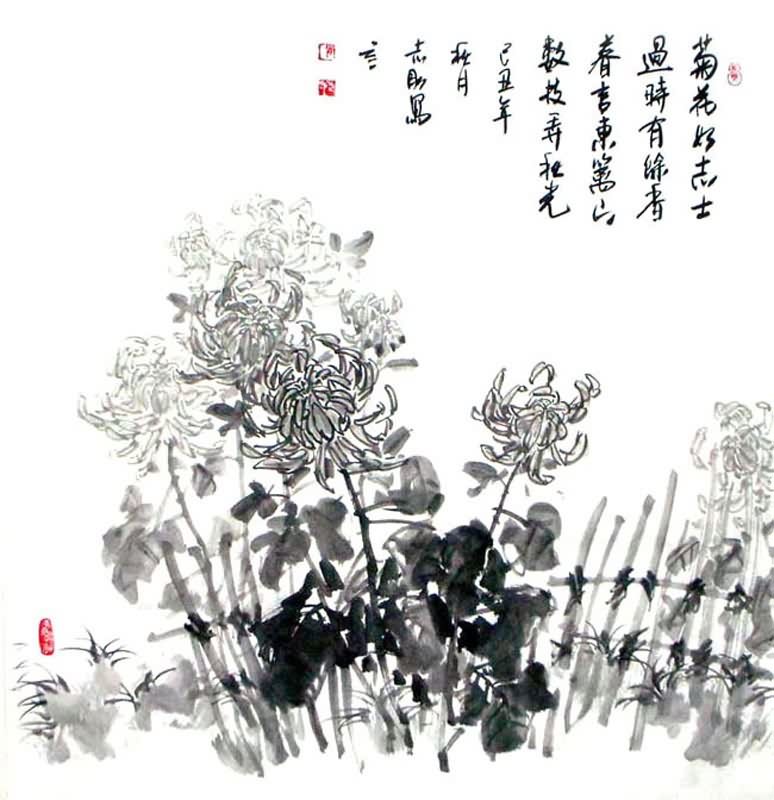 菊花如志士
過時有餘香
眷言東籬下
數枝弄秋光
己丑年
秋月
志 寫